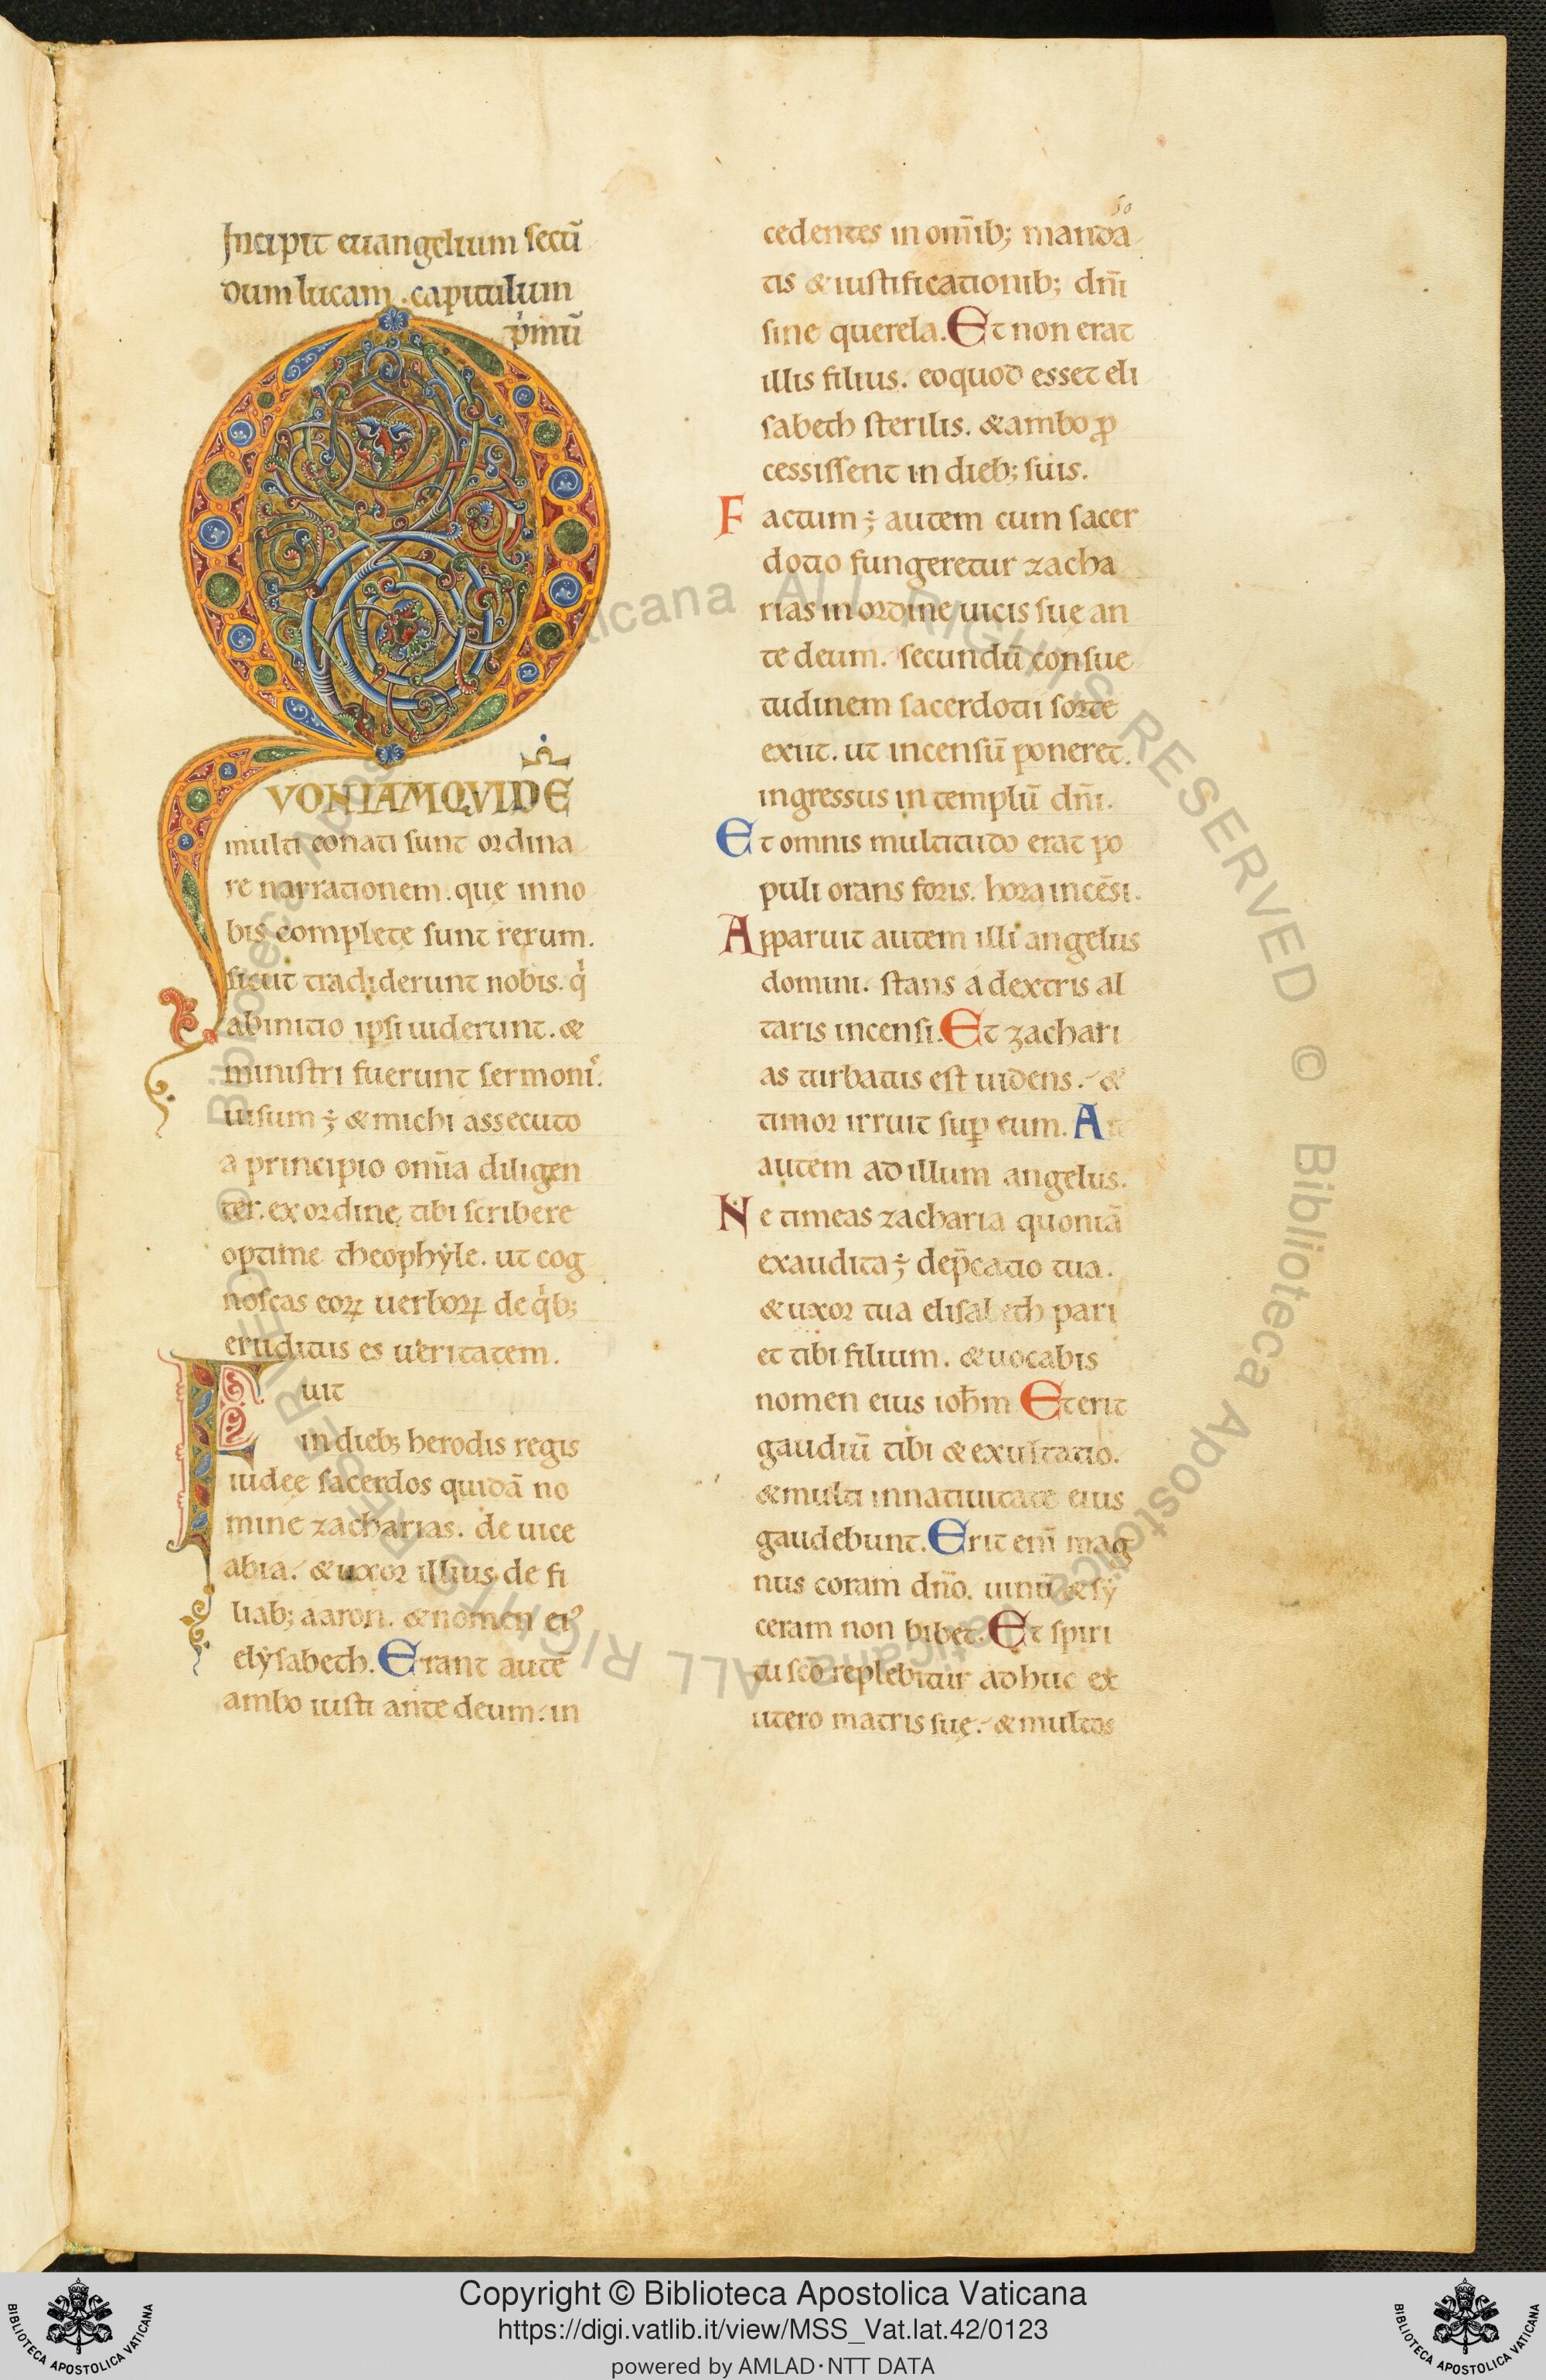 Incipit euangelium secū
dum lucam. capitulum
p̓imū
QVONIAMQVIDĒ
multi conati sunt ordina
re narrationem. que̜ in no
bis complete̜ sunt rerum.
sicut tradiderunt nobis. q̓
ab initio ipsi uiderunt. &
ministri fuerunt sermoni᾽.
uisum ÷ & michi assecuto
a principio om̄ia diligen
ter. ex ordine tibi scribere
optime theophẏle. ut cog
noscas eoꝝ uerboꝝ de q̓b;
eruditus es ueritatem.
Fuit
in dieb; herodis regis
iude̜e̜ sacerdos quidā no
mine zacharias. de uice
abia. & uxor illius de fi
liab; aaron. & nomen eiꝰ
elẏsabeth. Erant autē
ambo iusti ante deum. in
60
cedentes in om̄ib; manda
tis & iustificationib; dn̄i
sine querela. Et non erat
illis filius. eo quod esset eli
sabeth sterilis. & ambo ꝓ
cessissent in dieb; suis.
Factum ÷ autem cum sacer
dotio fungeretur zacha
rias in ordine uicis sue̜ an
te deum. secundū consue
tudinem sacerdotii sorte
exiit. ut incensū poneret.
ingressus in templū dn̄i.
Et omnis multitudo erat po
puli orans foris. hora incēsi.
Apparuit autem illi angelus
domini. stans a dextris al
taris incensi. Et zachari
as turbatus est uidens. &
timor irruit suꝑ eum. Ait
autem ad illum angelus.
Ne timeas zacharia quoniā
exaudita ÷ dep̄catio tua.
& uxor tua elisabeth pari
et tibi filium. & uocabis
nomen eius ioh̄m Et erit
gaudiū tibi & exultatio.
& multi in natiuitate eius
gaudebunt. Erit em̄ mag
nus coram dn̄o. uinū & sẏ
ceram non bibet. Et spiri
tu sc̄o replebitur adhuc ex
utero matris sue̜. & multos
© Biblioteca Apostolica Vaticana ALL RIGHTS RESERVED © Biblioteca Apostolica Vaticana ALL RIGHTS RESERVED
Copyright © Biblioteca Apostolica Vaticana
https://digi.vatlib.it/view/MSS_Vat.lat.42/0123
powered by AMLAD·NTT DATA
BIBLIOTECA APOSTOLICA VATICANA
BIBLIOTECA APOSTOLICA VATICANA